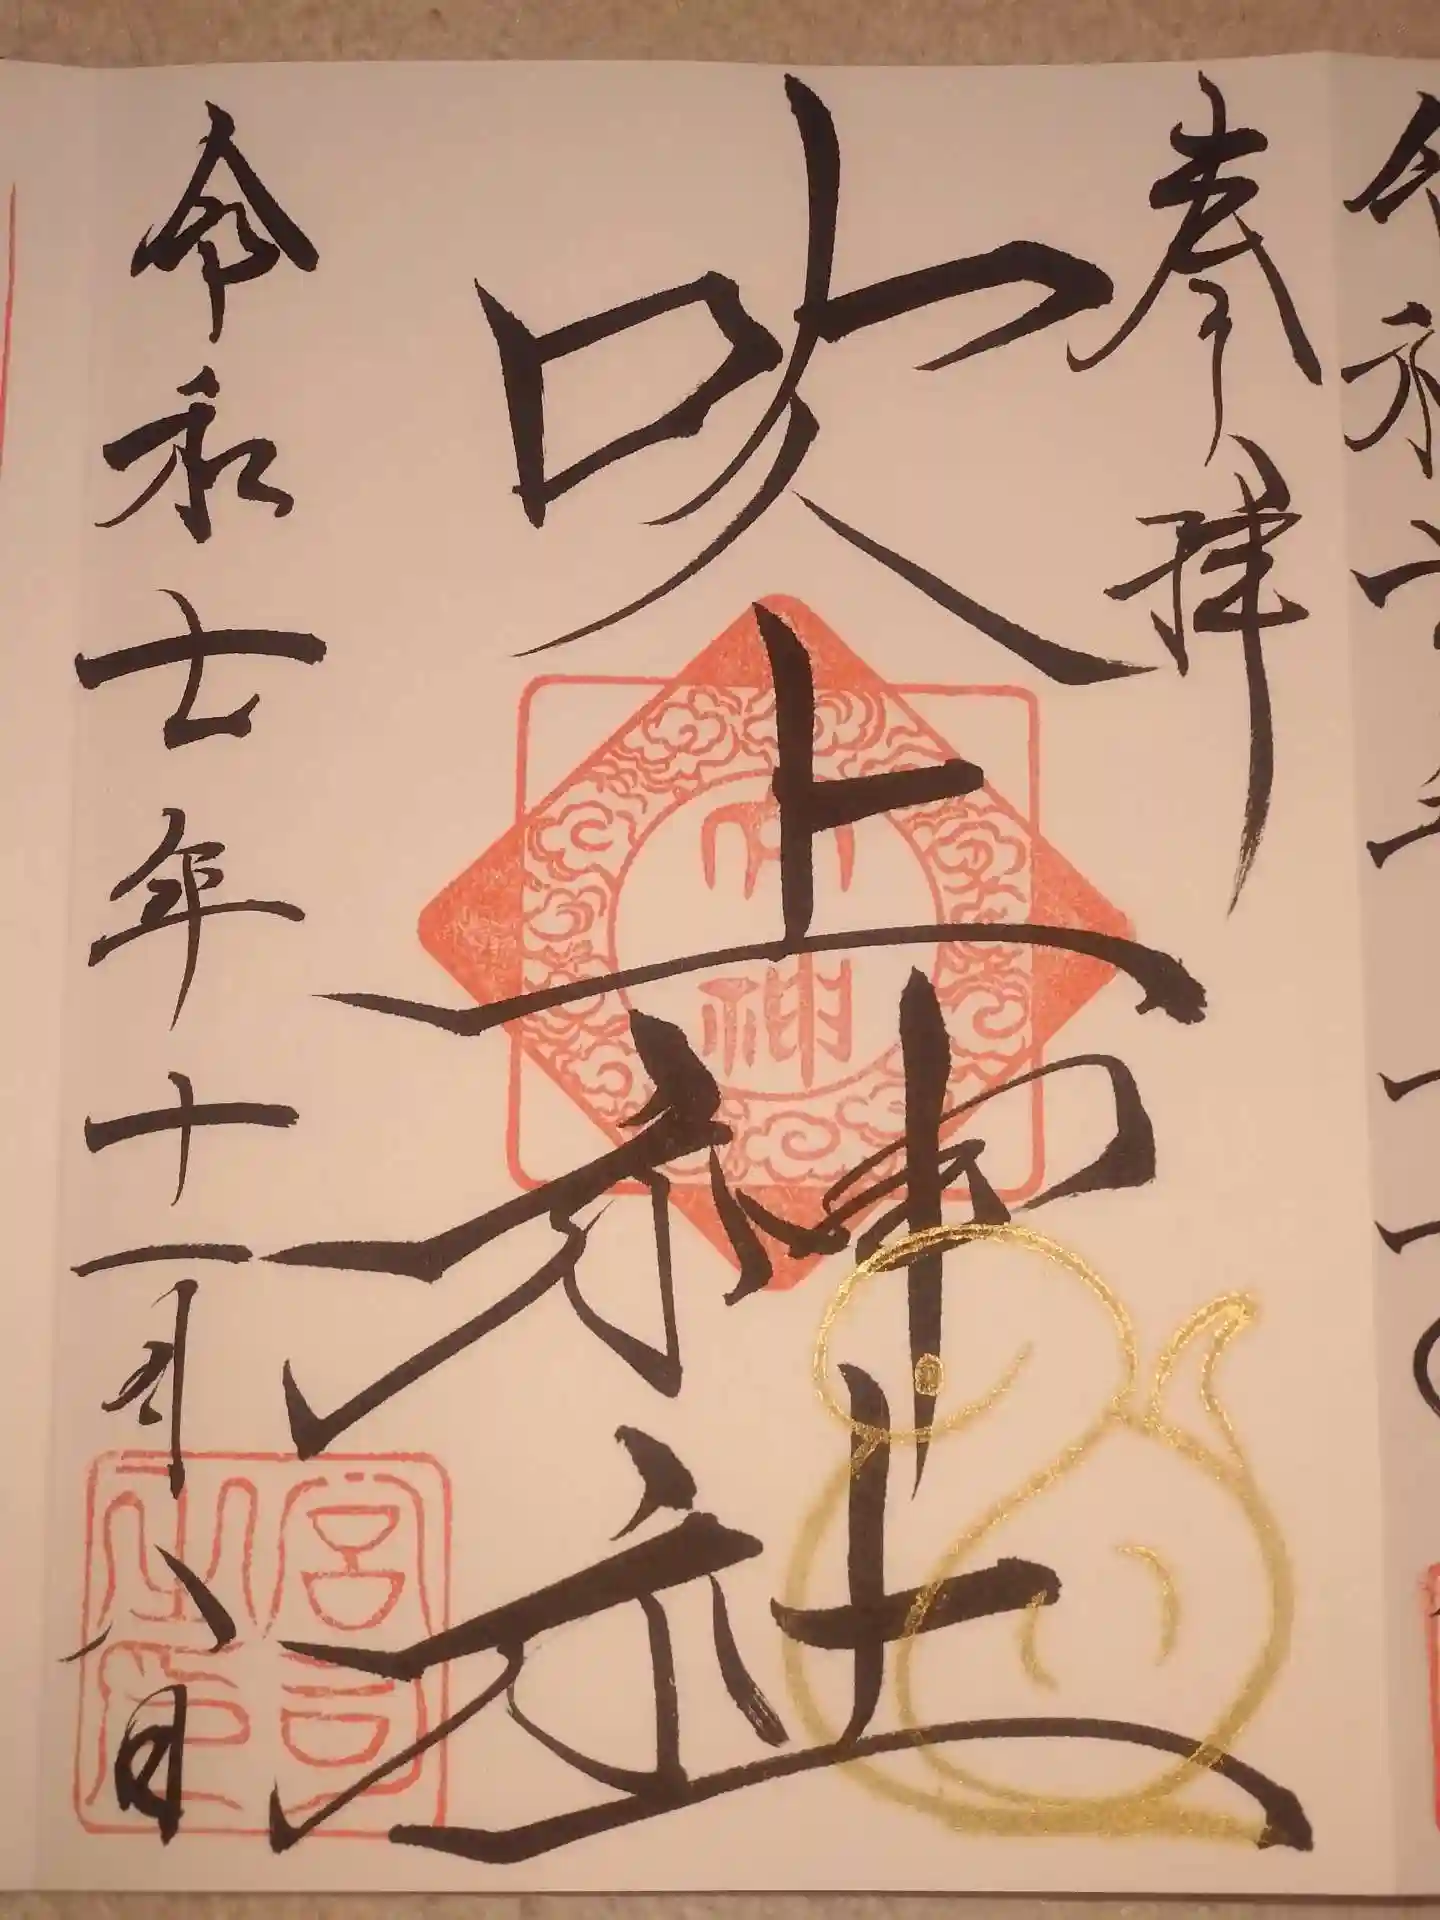 奉拝
吹上神社
令和七年十一月八日
宮司之印